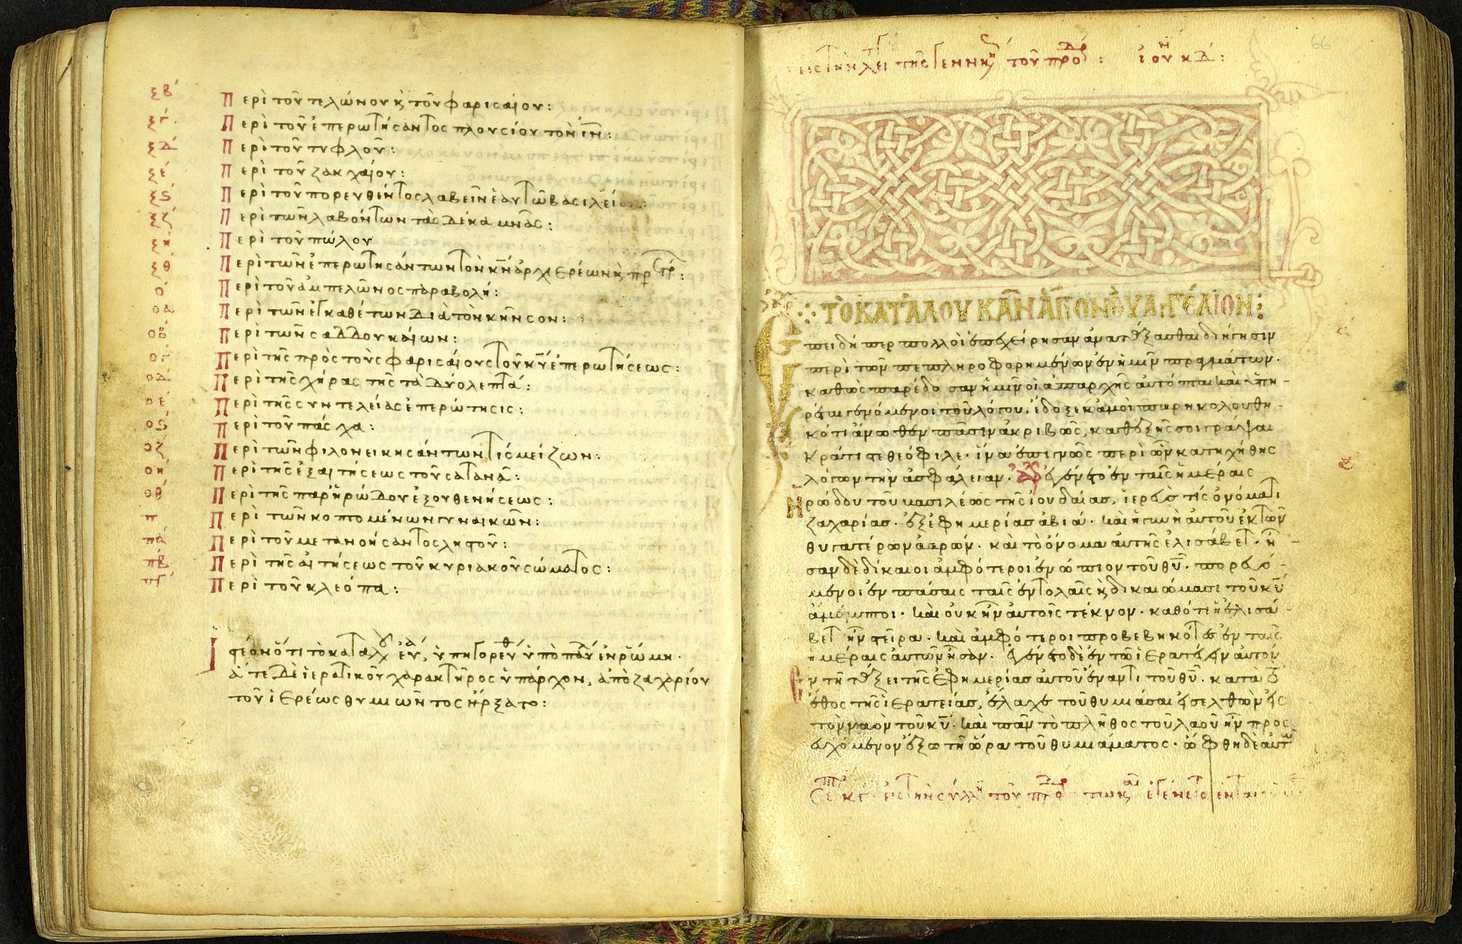 ξβ΄ Περὶ τοῦ τελώνου κ̀ τοῦ φαρισαίου:
ξγ΄ Περὶ τοῦ ἐπερωτήσαντος πλουσίου τὸν ιν̅:
ξδ΄ Περὶ τοῦ τυφλοῦ:
ξε΄ Περὶ τοῦ ζακχαίου:
ξϛ΄ Περὶ τοῦ πορευθέντος λαβεῖν ἑαυτῶ βασιλεί
ξζ΄ Περὶ τῶν λαβόντων τὰς δέκα μνᾶς:
ξη Περὶ τοῦ πώλου
ξθ΄ Περὶ τῶν ἐπερωτησάντων τὸν κν̅ ἀρχιερέων κ̀
ο΄ Περὶ τοῦ ἀμπελῶνος παραβολή:
οα Περὶ τῶν ἐγκαθέτων διὰ τὸν κῆνσον:
οβ΄ Περὶ τῶν σαδδουκαίων:
ογ Περὶ τῆς πρὸς τοὺς φαρισαίους τοῦ κυ̅ ἐπερωτήσεως:
οδ΄ Περὶ τῆς χήρας τῆς τὰ δύο λεπτά:
οε Περὶ τῆς συντελείας ἐπερώτησις:
οϛ Περὶ τοῦ πάσχα:
οζ Περὶ τῶν φιλονεικησάντων τίς μείζων:
οη Περὶ τῆς ἐξαιτήσεως τοῦ σατανᾶ:
οθ΄ Περὶ τῆς παρ' ἡρώδου ἐξουθενήσεως:
π Περὶ τῶν κοπτομένων γυναικῶν:
πα Περὶ τοῦ μετανοήσαντος ληστοῦ:
πβ Περὶ τῆς αἰτήσεως τοῦ κυριακοῦ σώματος:
πγ΄ Περὶ τοῦ κλεόπα:
Ἰστέον ὅτι τὸ κατὰ ὑπηγορεύθη ὑπὸ ἐν ῥώμη.
ἅτε δὲ ἱερατικοῦ χαρακτῆρος ὑπάρχον, ἀπὸ ζαχαρίου
τοῦ ἱερέως θυμιῶντος ἤρξατο:
66
τῆς τοῦ ἰουν κδ:
ΤῸ ΚΑΤᾺ ΛΟΥΚΑ͂Ν ἍΓΙΟΝ ΕΥΑΓΓΈΛΙΟΝ:
Ἐπειδήπερ πολλοὶ ἐπεχείρησαν ἀνατάξασθαι διήγησιν
περὶ τῶν πεπληροφορημένων ἐν ἡμῖν πραγμάτων.
καθὼς παρέδοσαν ἡμῖν οἱ ἀπαρχῆς αὐτόπται καὶ ὑπη-
ρέται γενόμενοι τοῦ λόγου. ἔδοξε κἀμοὶ παρηκολουθη-
κότι ἄνωθεν πᾶσιν ἀκριβῶς, καθεξῆς σοι γράψαι
κράτιστε θεόφιλε. ἵνα ἐπιγνῶς περὶ ὧν κατηχήθης
λόγων τὴν ἀσφάλειαν. ἐγένετο ἐν ταῖς ἡμέραις
ἡρώδου τοῦ βασιλέως τῆς ἰουδαίας, ἱερεύς τις ὀνόματι
ζαχαρίας. ἐξ ἐφημερίας ἀβιά. καὶ ἡ γυνὴ αὐτοῦ ἐκ τῶν
θυγατέρων ἀαρών. καὶ τὸ ὄνομα αὐτῆς ἐλισάβετ. ἦ-
σαν δὲ δίκαιοι ἀμφότεροι ἐνώπιον τοῦ θυ̅. πορευό-
μενοι ἐν πάσαις ταῖς ἐντολαῖς κ̀ δικαιώμασι τοῦ κυ̅
ἄμεμπτοι. καὶ οὐκ ἦν αὐτοῖς τέκνον. καθότι ἡ ἐλισά-
βετ ἦν στεῖρα. καὶ ἀμφότεροι προβεβηκότες ἐν ταῖς
ἡμέραις αὐτῶν ἦσαν. ἐγένετο δὲ ἐν τῶ ἱερατεύειν αὐτὸν
ἐν τῆ τάξει τῆς ἐφημερίας αὐτοῦ ἔναντι τοῦ θυ̅. κατὰ τὸ
ἔθος τῆς ἱερατείας, ἔλαχε τοῦ θυμιάσαι εἰσελθὼν εἰς
τὸν ναὸν τοῦ κυ̅. καὶ πᾶν τὸ πλῆθος τοῦ λαοῦ ἦν προσ-
ευχόμενον ἔξω τῆ ὥρα τοῦ θυμιάματος. ὤφθη δὲ αὐτῶ
τοῦ ἐγένετο ἐν ταῖς